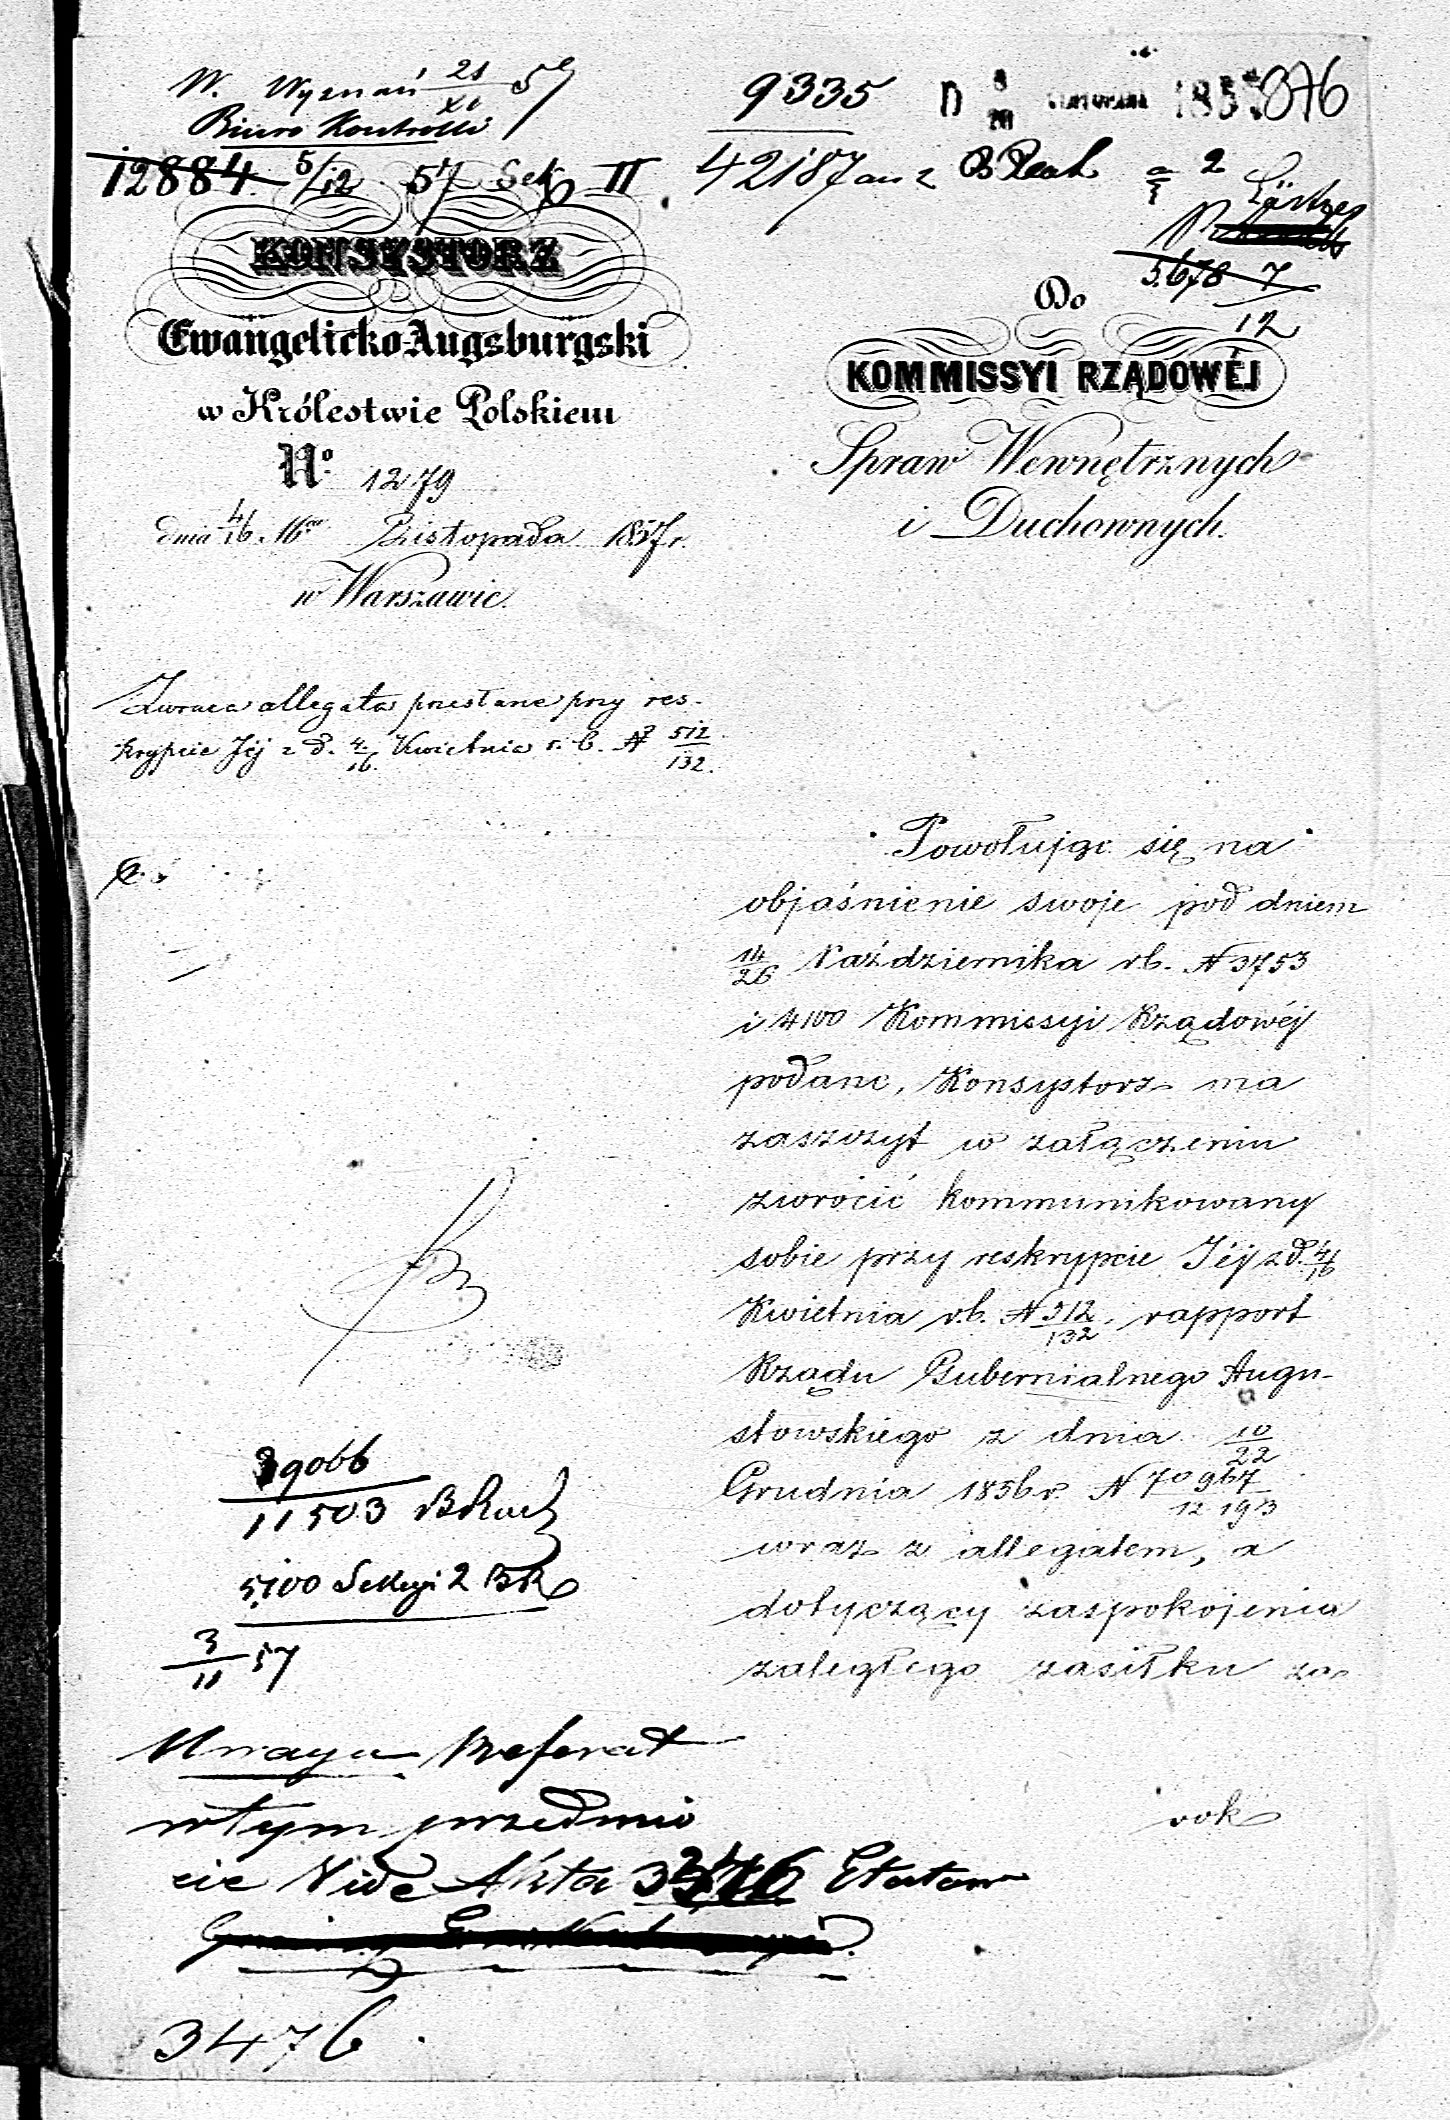 W. Wyznań 21/XI 57
Biuro Kontrolli
12884 5/12 57 Sek II
9335 D LISTOPADA 185 376
42187
5678 7/12
KONSYSTORZ
Ewangelicko-Augsburgski
w Królestwie Polskiem
No. 1279
dnia 4/16 Listopada 1857 r.
w Warszawie.
Do
KOMMISSYI RZĄDOWÉJ
Spraw Wewnętrznych
i Duchownych.
Zwraca allegata przesłane przy res-
krypcie Jéj z d. 4/16 Kwietnia r. b. N 512/132.
Powołując się na
objaśnienie swoje pod dniem
14/26 Października r.b. N 3753
i 4100 Kommissyi Rządowéj
podane, Konsystorz ma
zaszczyt w załączeniu
zwrócić kommunikowany
sobie przy reskrypcie Jéj z d. 4/16
Kwietnia r.b. N 512/132, rapport
Rządu Gubernialnego Augu-
stowskiego z dnia 10/22
Grudnia 1856 r. N 70967/12193
wraz z allegatem, a
dotyczący zaspokojenia
zaległego zasiłku za
rok
39066
11503
5100 Sekcyi 2
3/11 57
Uwaga Referat
w tym przedmio
cie Vide Akta 3476 Etatów
3476